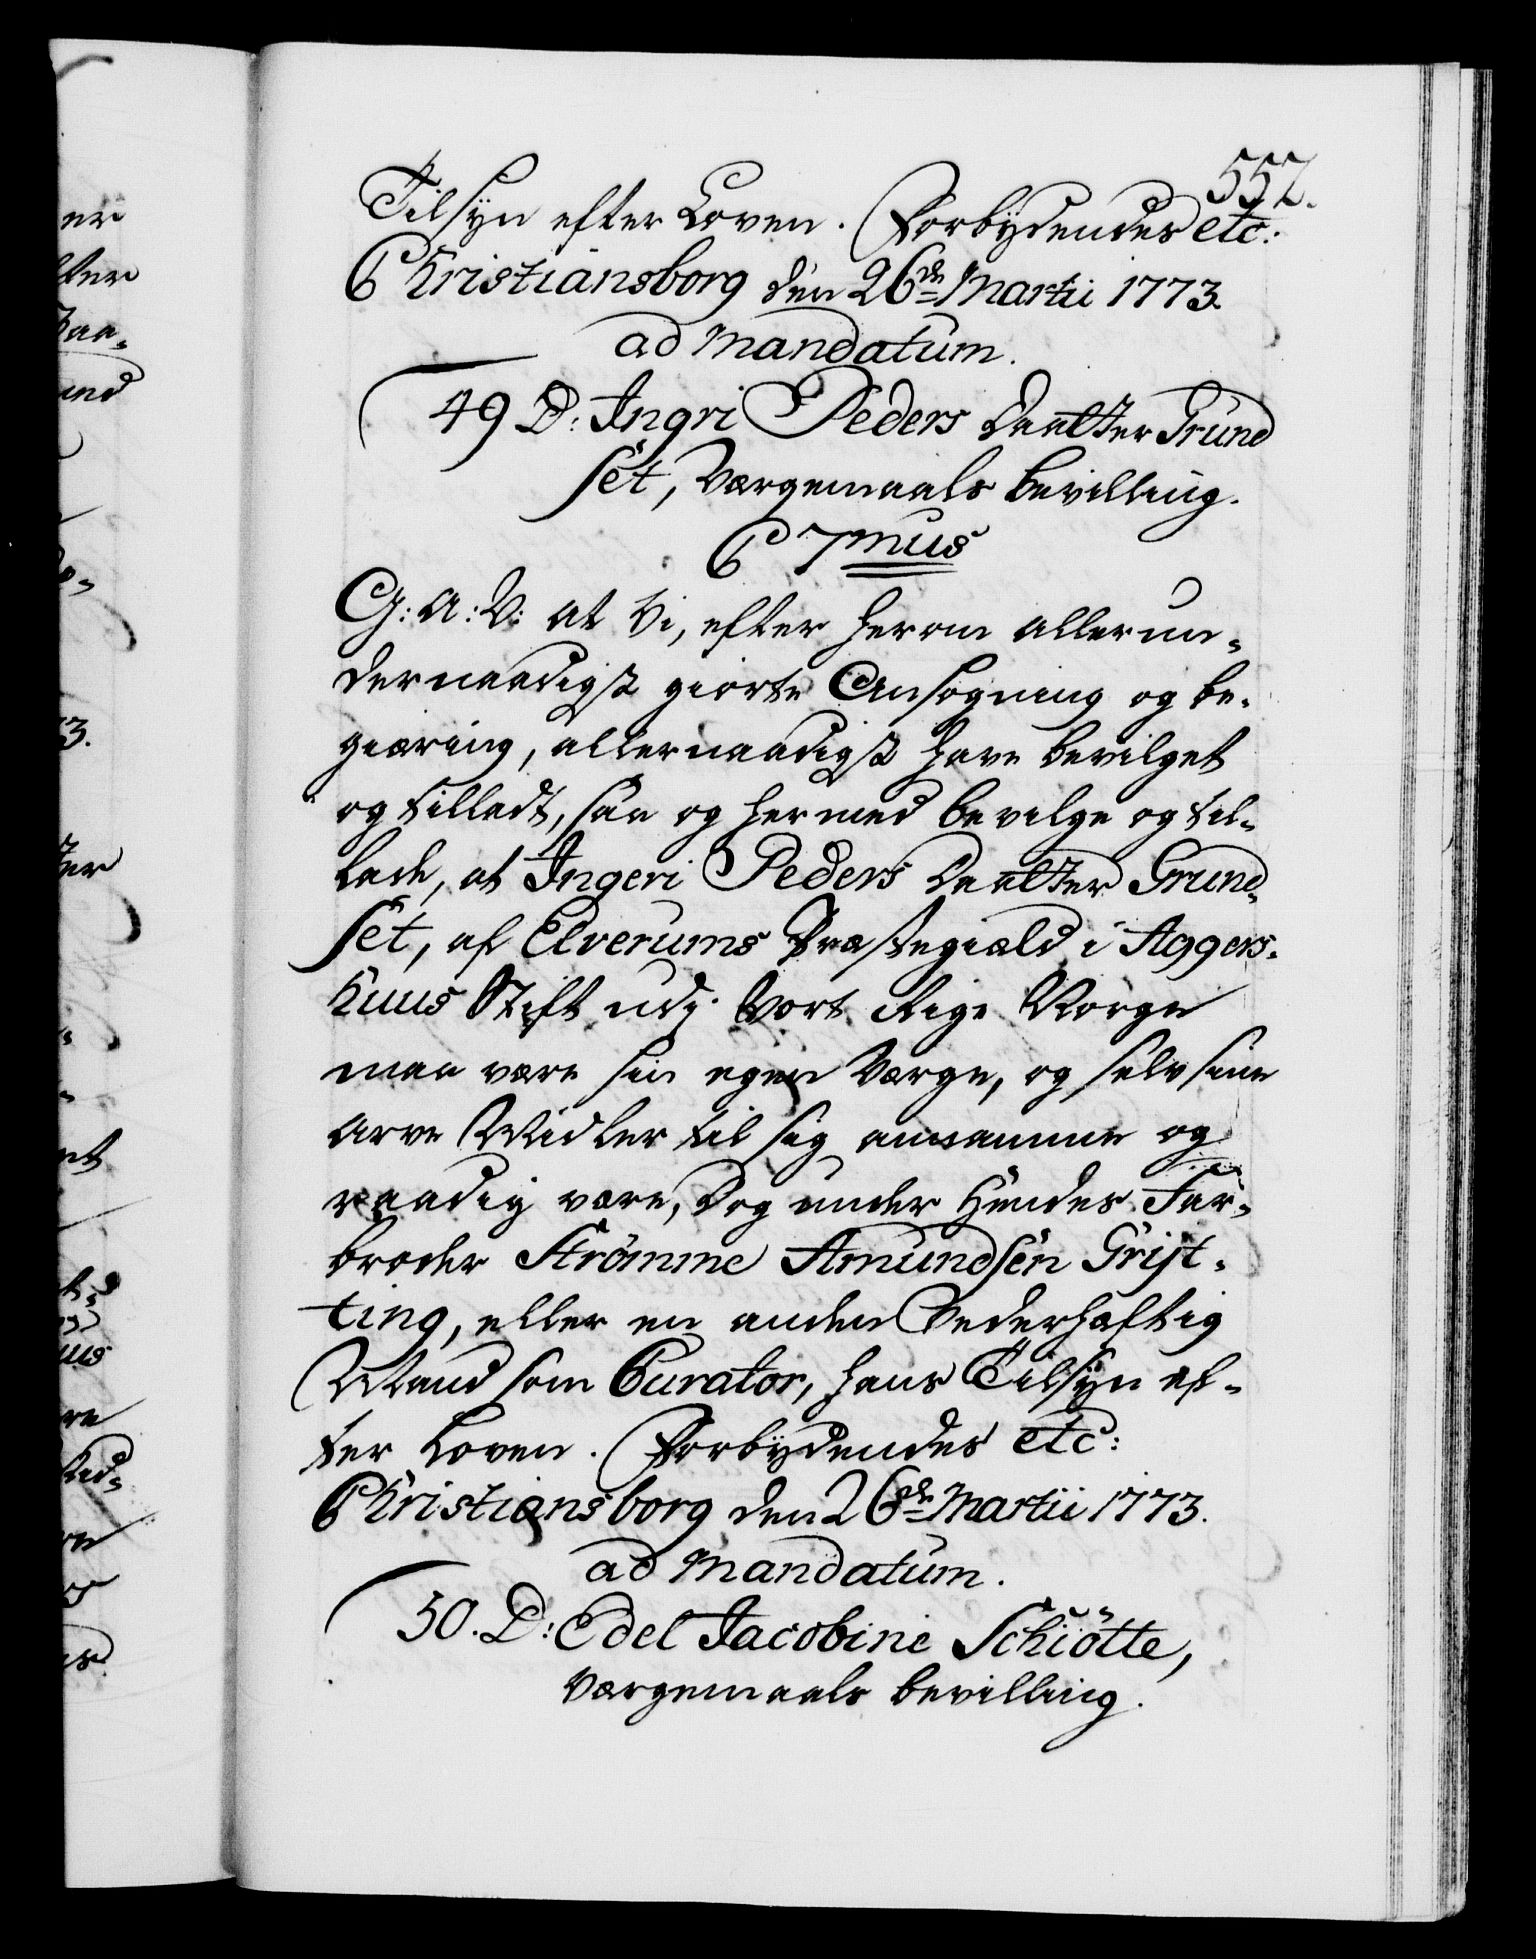 552.
Tilsyn efter Loven. Forbydendes etc:
Christiansborg den 26de Martii 1773.
ad mandatum.
49 D: Ingri Peders Daatter Grund
set, Værgemaals bevilling.
C 7mus
G: A: V: at Vi, efter herom allerun-
dernaadigst giorte Ansøgning og be-
giæring, allernaadigst have bevilget
og tilladt, saa og hermed bevilge og til-
lade, at Ingeri Peders Daatter Grund-
set, af Elverums Præstegiæld i Aggers-
huus Stift udj Vort Rige Norge
maa være sin egen Værge, og selv sine
Arve Midler til sig annamme og
raadig være, dog under hendes Far-
broder Strømme Amundsen Grist-
ting, eller en anden Vederhæftig
Mand som Curator, hans Tilsyn ef-
ter Loven. Forbydendes etc:
Christiansborg den 26de Martii 1773.
ad mandatum.
50. D: Edel Jacobine Schiøtte,
Værgemaals bevilling.